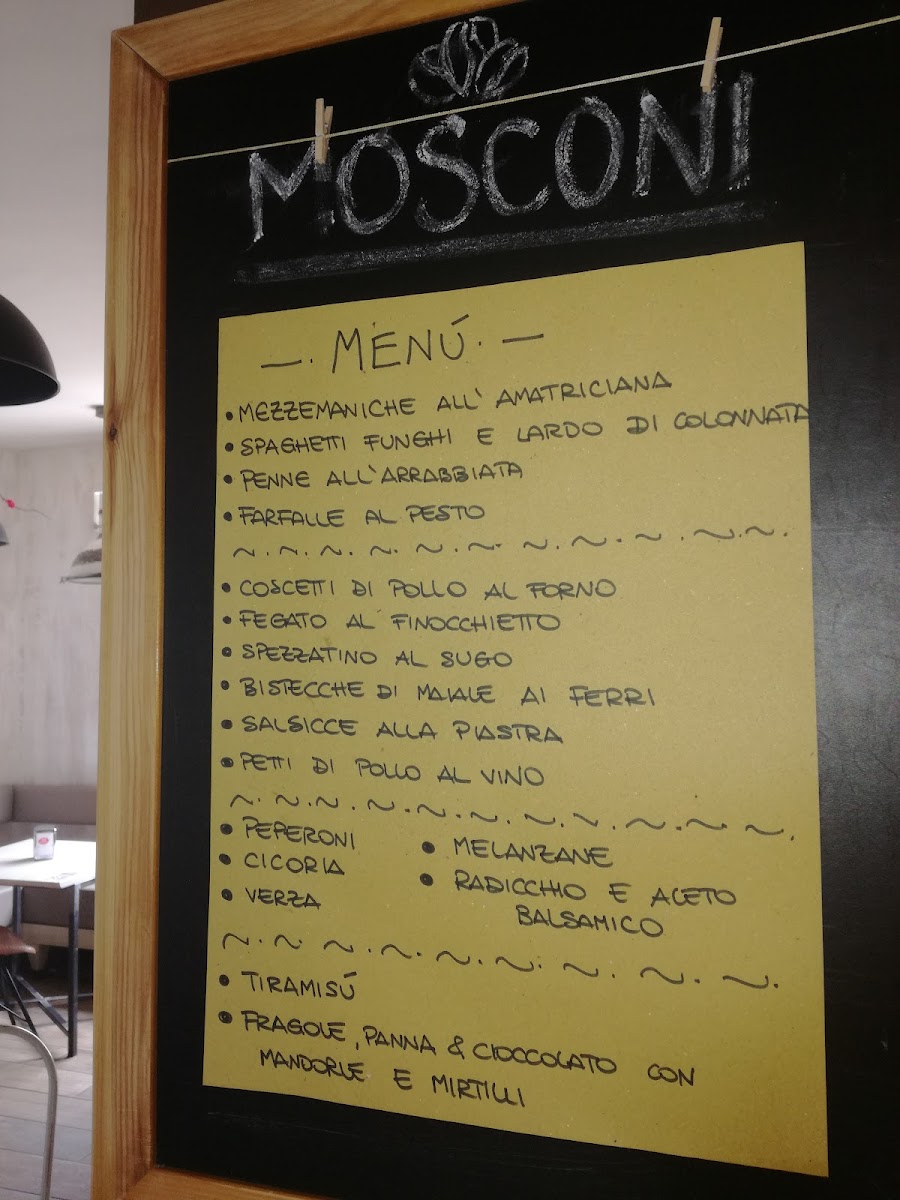 MOSCONI
—. MENÚ. —
• MEZZEMANICHE ALL' AMATRICIANA
• SPAGHETTI FUNGHI E LARDO DI COLONNATA
• PENNE ALL'ARRABBIATA
• FARFALLE AL PESTO
• COSCETTI DI POLLO AL FORNO
• FEGATO AL FINOCCHIETTO
• SPEZZATINO AL SUGO
• BISTECCHE DI MAIALE AI FERRI
• SALSICCE ALLA PIASTRA
• PETTI DI POLLO AL VINO
• PEPERONI
• CICORIA
• VERZA
• MELANZANE
• RADICCHIO E ACETO
BALSAMICO
• TIRAMISÚ
• FRAGOLE, PANNA & CIOCCOLATO CON
MANDORLE E MIRTILLI